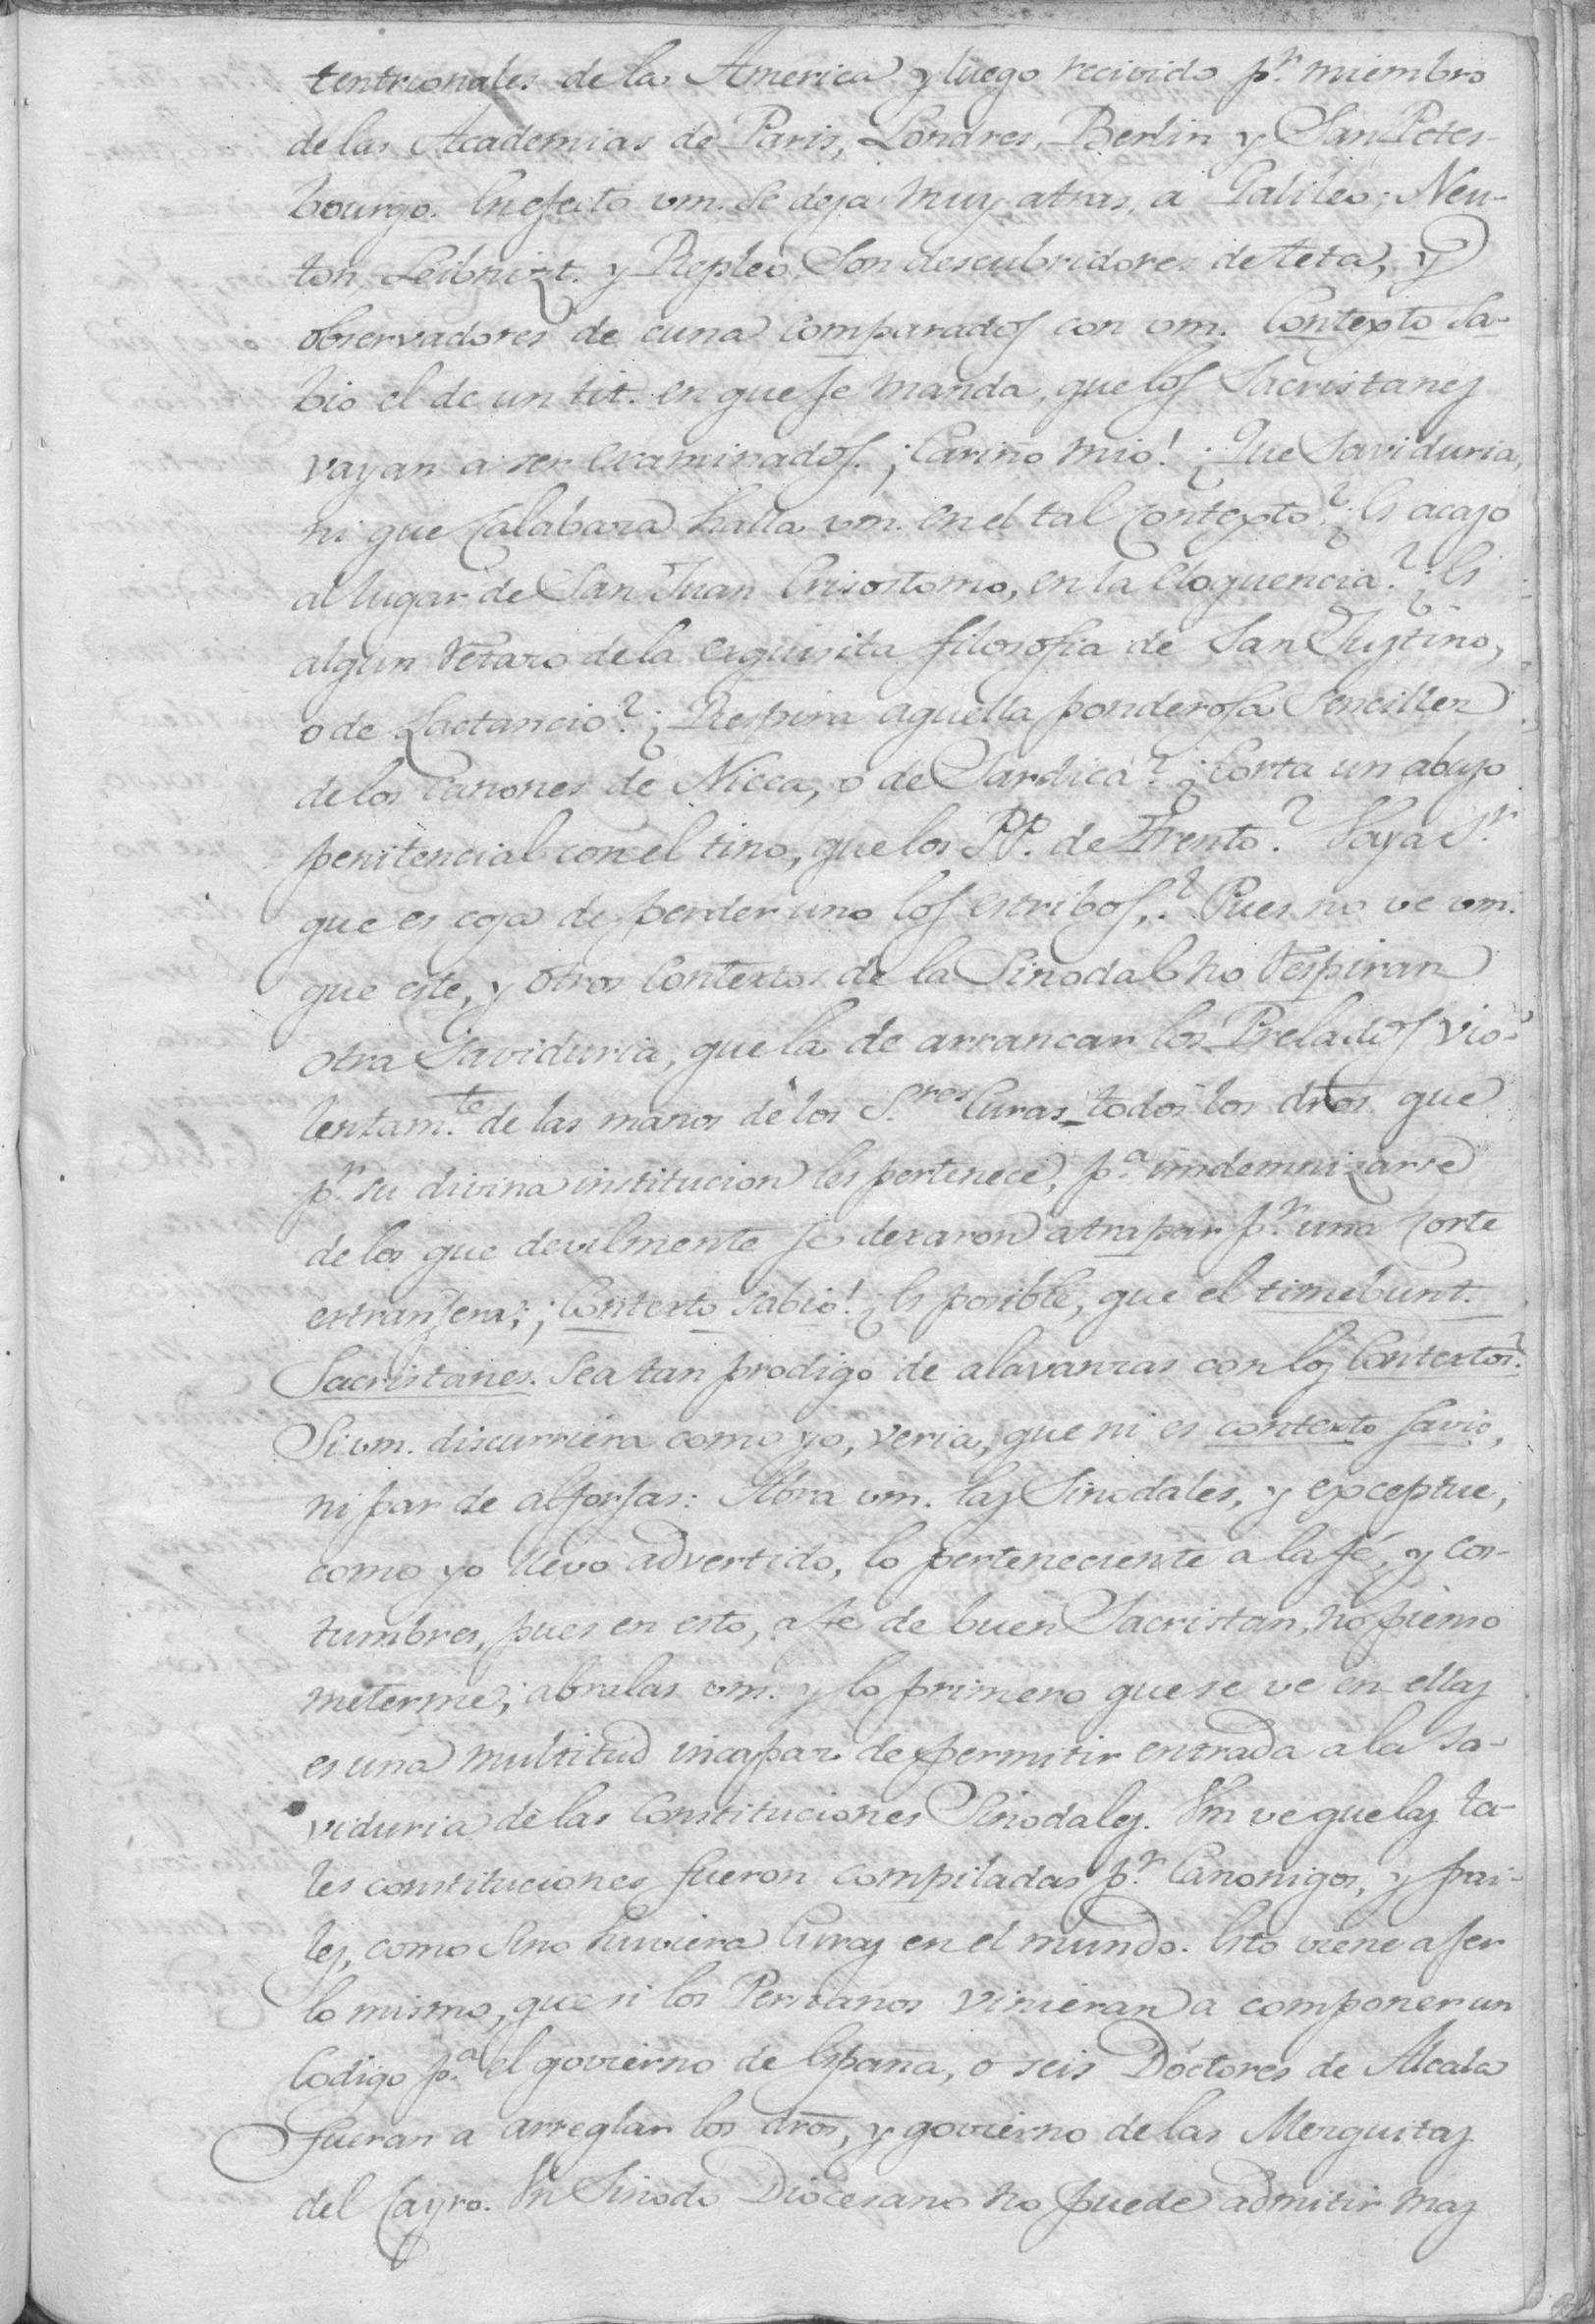 tentrionales de la America y luego recivido p.r miembro
de las Academias de Paris, Londres, Berlin y San Peters-
bourgo. En efecto vm. se deja muy atras, a Galileo; Neu-
ton, Leibnizt. y Repleo son descubridores de teta, y
observadores de cuna comparados con vm. Contexto sa-
bio el de un tit. en que se manda, que los Sacristanes
vayan a ser examinados. ¡Cariño mio! ¿Que saviduria,
ni que calabaza halla vm. en el tal contexto? ¿Es acaso
al lugar de San Juan Crisostomo, en la eloquencia? ¿Es
algun retazo de la exquisita filosofia de San Justino,
o de Lactancio? ¿Respira aquella ponderosa sencillez
de los Canones de Nicea, o de Sardica? ¿Corta un abuso
penitencial con el tino, que los PP. de Trento? Vaya S.r
que es cosa de perder uno los estribos,? Pues no ve vm.
que este, y otros contextos de la Sinodal no respiran
otra saviduria, que la de arrancar los Prelados vio-
lentam.te de las manos de los S.res Curas todos los dros que
p.r su divina institucion les pertenece, p.a imdemnizarse
de los que devilmente se dexaron atrapar p.r una corte
extranjera; ¡Contexto sabio! ¿Es posible, que el timebunt.
Sacristanes. sea tan prodigo de alavanzas con los contextos?
Si vm. discurriera como yo, veria, que ni es contexto savio,
ni par de alforjas: Abra vm. las Sinodales, y exceptue,
como yo llevo advertido, lo perteneciente a la fé, y cos-
tumbres, pues en esto, a fe de buen Sacristan, no pienso
meterme; abralas vm. y lo primero que se ve en ellas
es una multitud incapaz de permitir entrada a la sa-
viduria de las Constituciones Sinodales. Vm ve que las ta-
les constituciones fueron compiladas p.r Canonigos, y frai-
les, como si no huviera Curas en el mundo. Esto viene a ser
lo mismo, que si los Persianos vinieran a componer un
Codigo p.a el govierno de España, o seis Doctores de Alcala
fueran a arreglar los dros, y govierno de las Mezquitas
del Cayro. Un Sinodo Diocesano no puede admitir mas